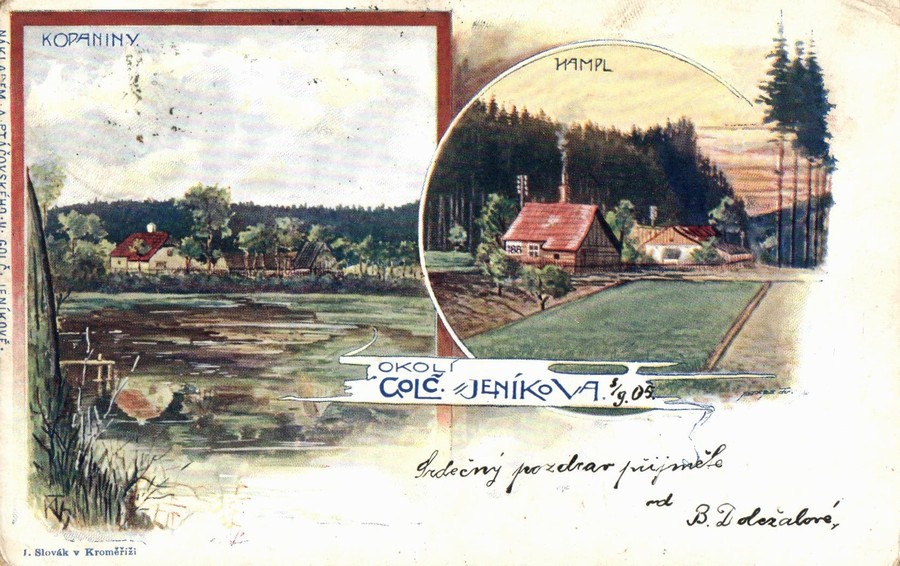 KOPANINY.
HAMPL
NÁKLADEM A. PTÁČOVSKÉHO V GOLČ. JENÍKOVĚ.
OKOLÍ
GOLČ. JENÍKOVA.
5/9. 05.
Srdečný pozdrav přijměte
od
B. Doležalové,
I. Slovák v Kroměříži